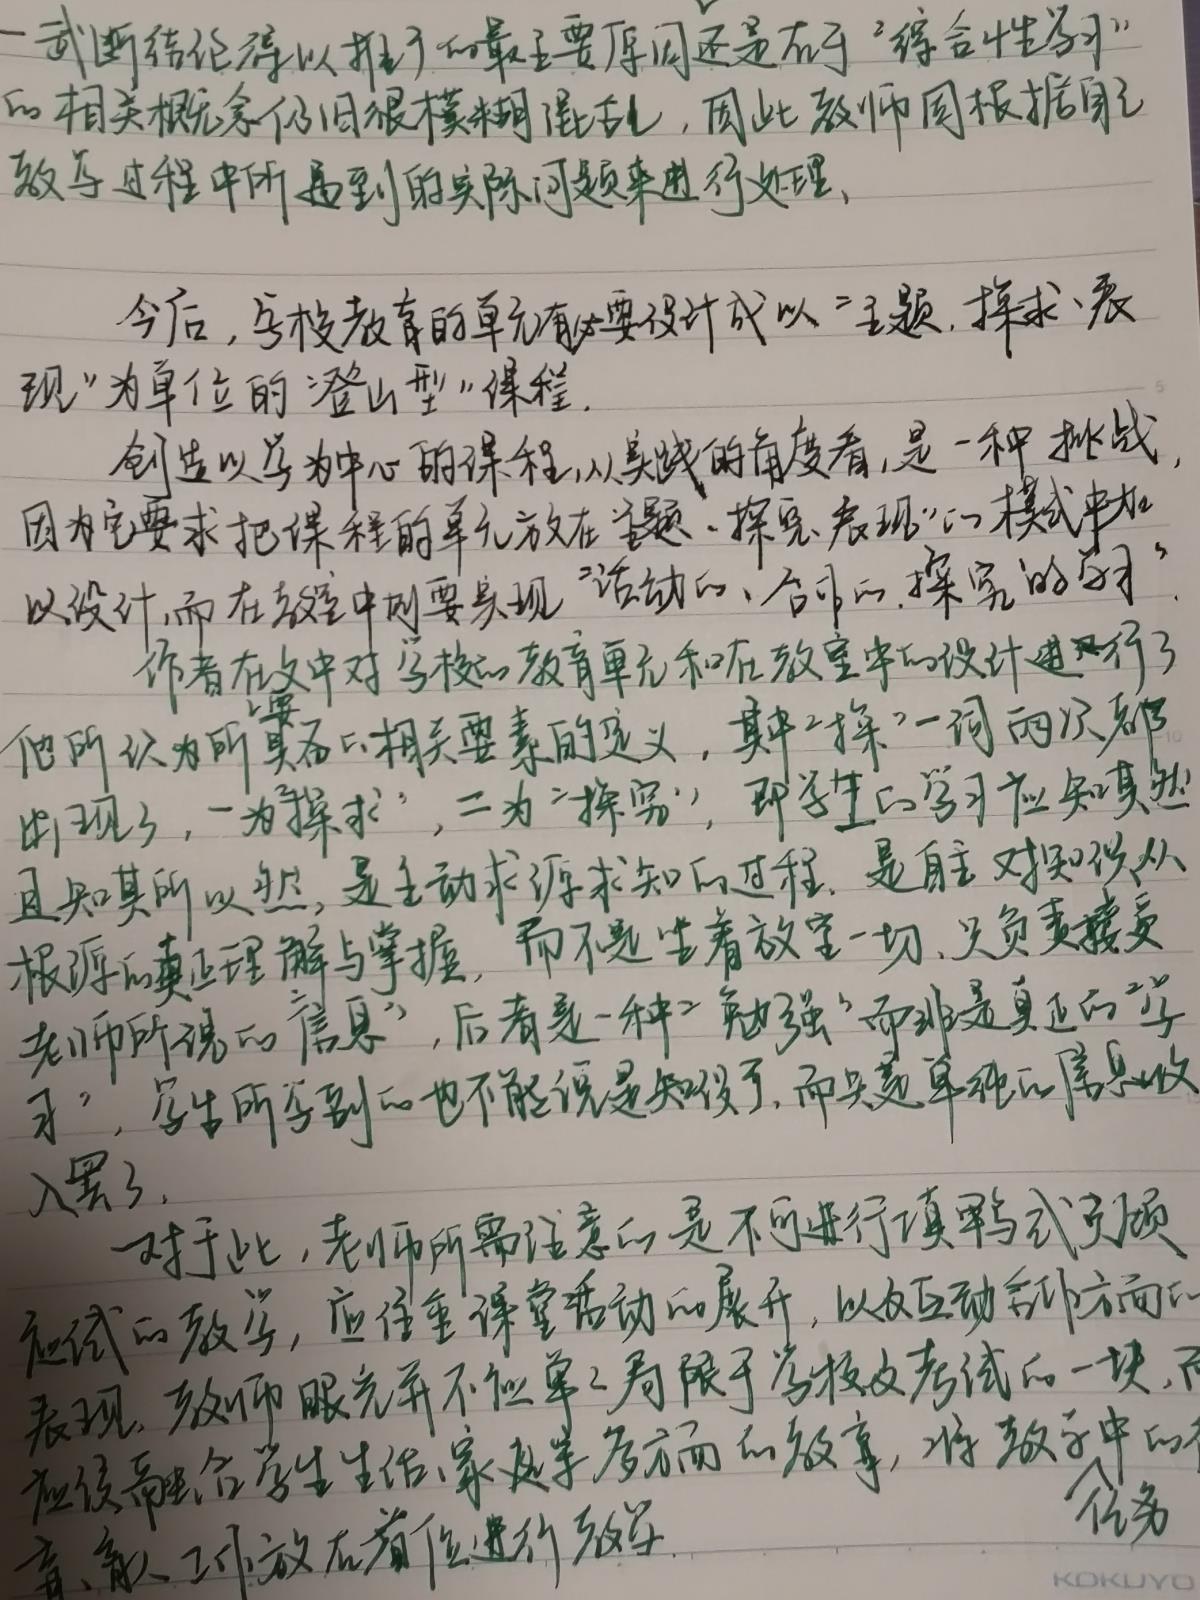 一武断结论得以推予的最主要原因还是在于“综合性学习”
的相关概念仍旧很模糊混乱，因此教师因根据自己
教学过程中所遇到的实际问题来进行处理、
今后，学校教育的单元有必要设计成以“主题、探求、表
现”为单位的“登山型”课程.
创造以学为中心的课程，从实践的角度看，是一种挑战，
因为它要求把课程的单元放在“主题、探究、表现”的模式中加
以设计，而在教室中则要实现“活动的、合作的、探究的学习”.
作者在文中对学校的教育单元和在教室中的设计进行了
他所认为所要具备的相关要素的定义，其中“探”一词两次都
出现了，一为“探求”，二为“探究”，即学生的学习应知其然
且知其所以然，是主动求源求知的过程. 是自主对知识从
根源的真正理解与掌握，而不是坐着放空一切、只负责接受
老师所说的“信息”，后者是一种“勉强”而非是真正的“学
习”，学生所学到的也不能说是知识了，而只是单纯的信息收
入罢了.
对于此，老师所需注意的是不可进行填鸭式
应试的教学，应注重课堂活动的展开，以及互动合作方面的
表现. 教师眼光并不仅单单局限于学校及考试的一块，而
应该融合学生生活、家庭等多方面的教育，将教学中的
任务
育、育人工作放在首位进行教学.
KOKUYO